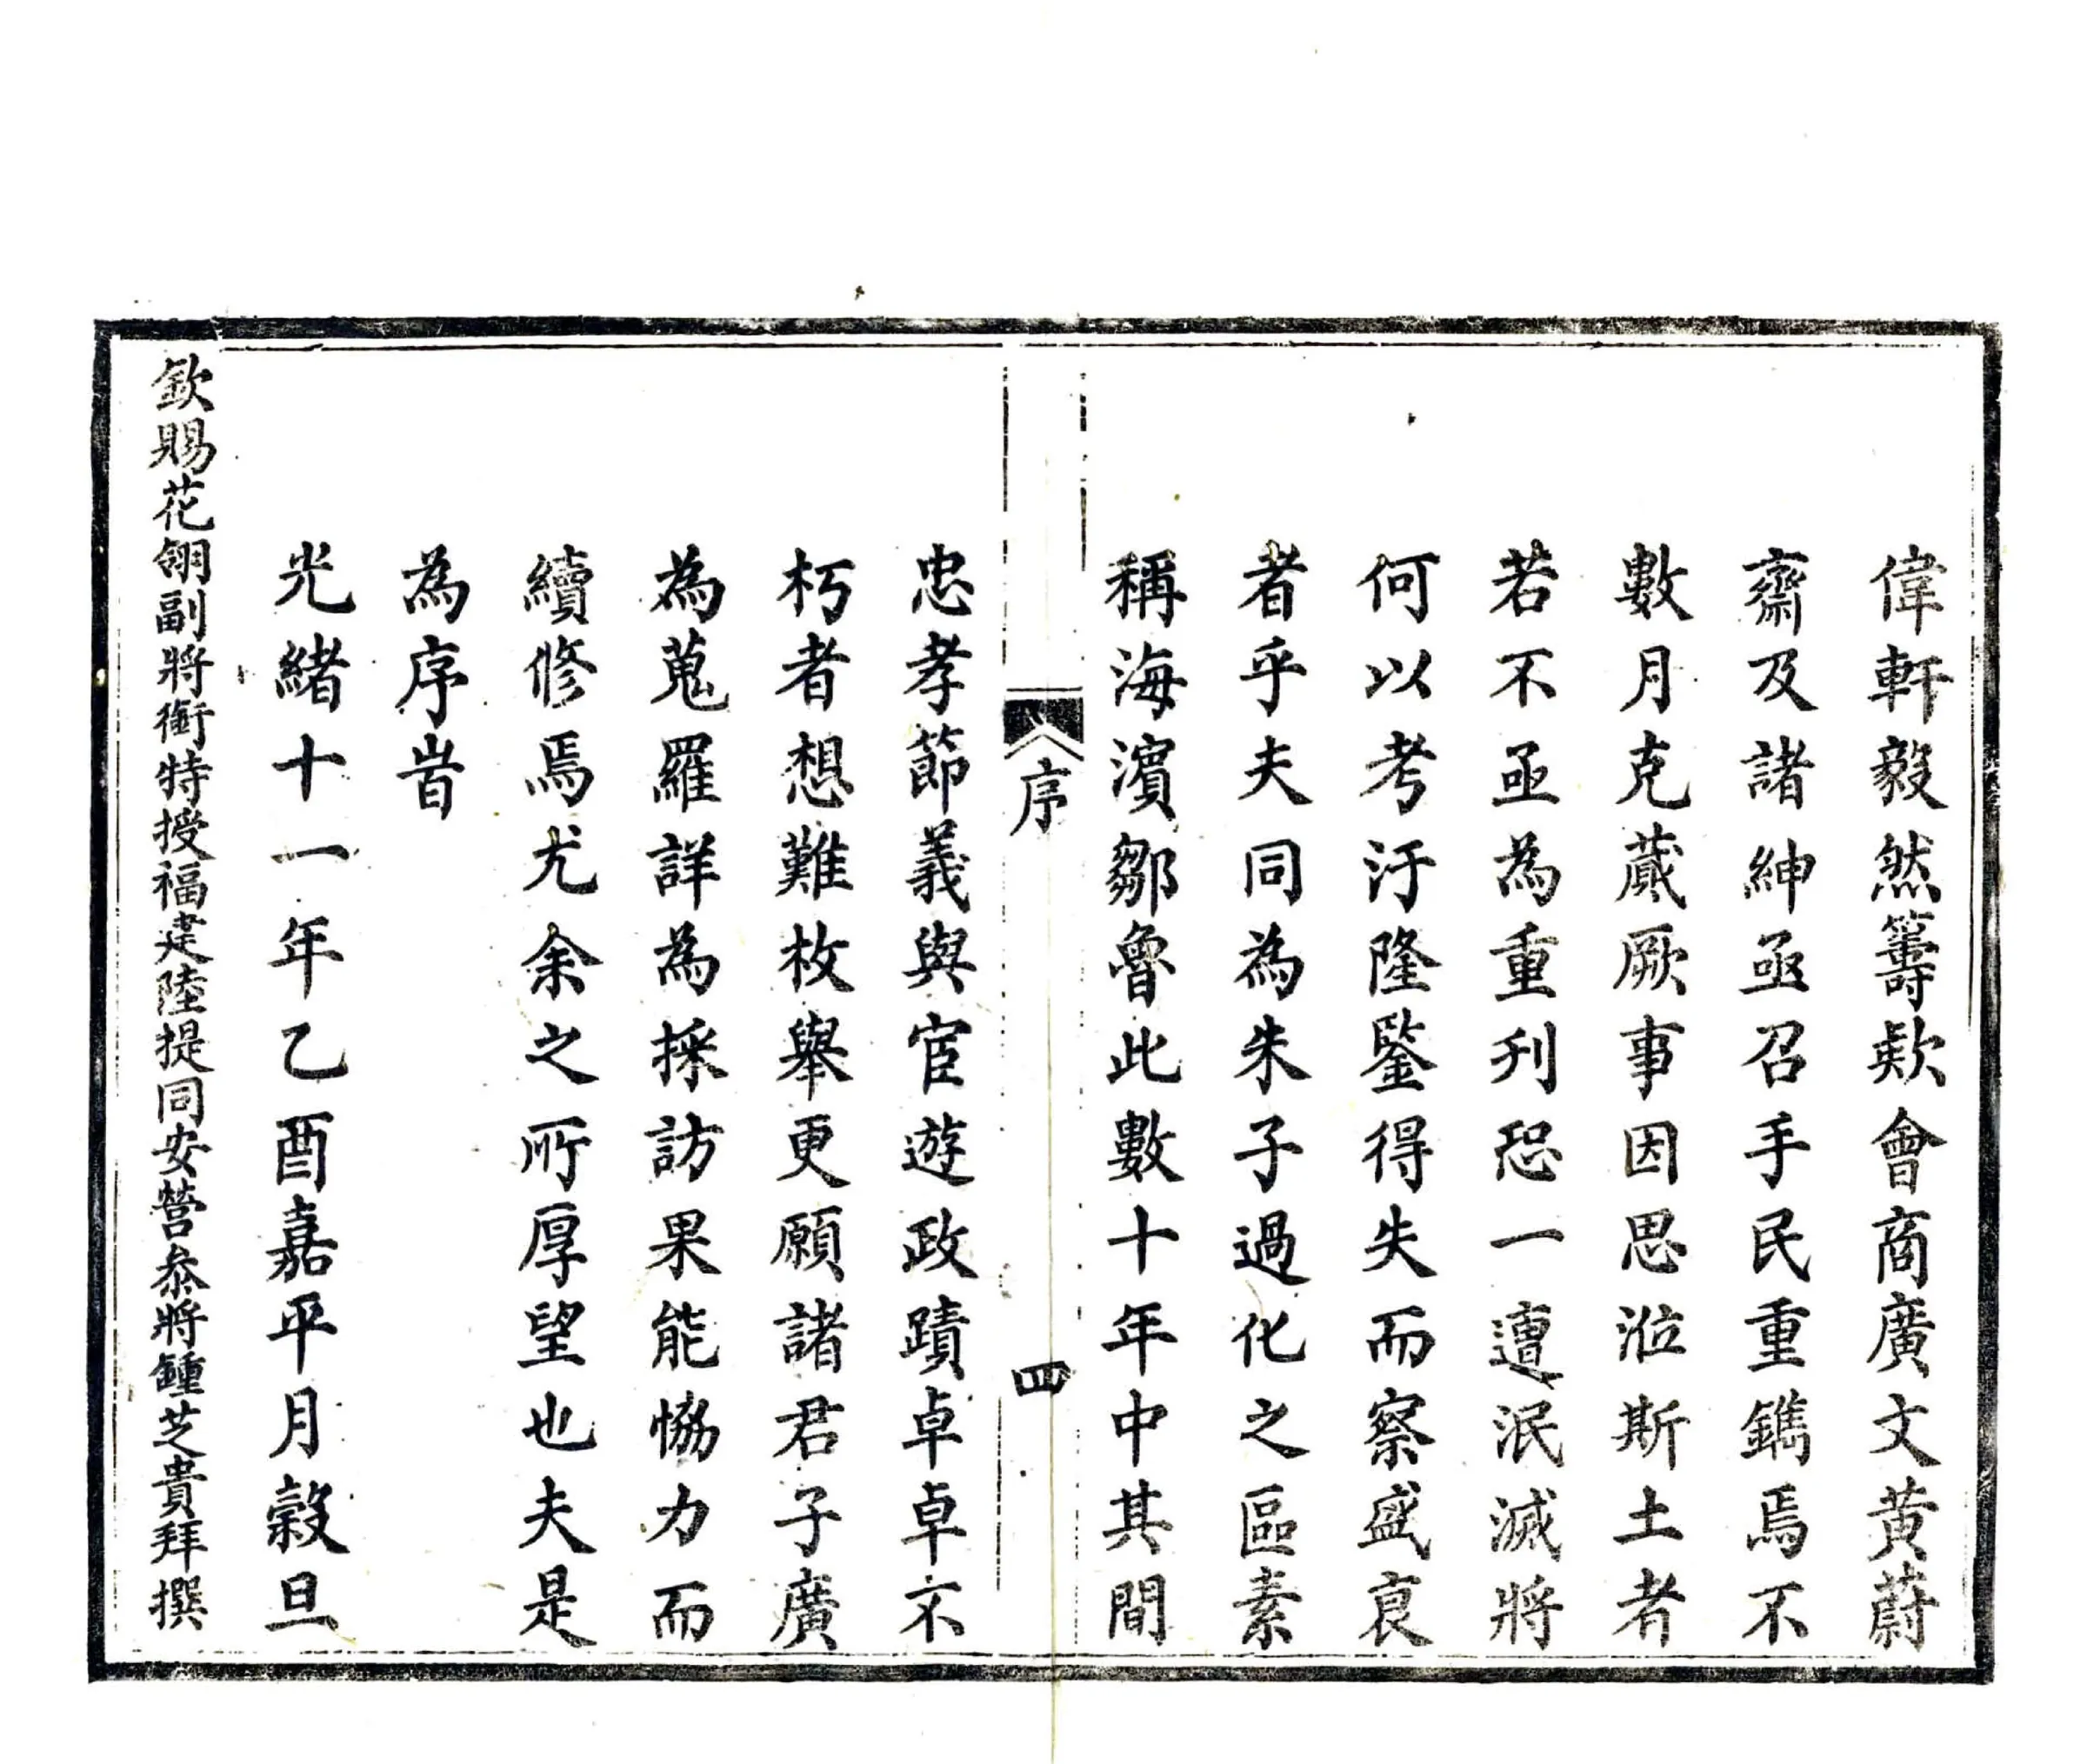 偉軒毅然籌欵會商廣文黃蔚
齋及諸紳亟召手民重鐫焉不
數月克蕆厥事因思涖斯土者
若不亟為重刋恐一遭泯滅將
何以考汙隆鍳得失而察盛衰
者乎夫同為朱子過化之區素
稱海濵鄒魯此數十年中其間
序
四
忠孝節義與宦遊政蹟卓卓不
朽者想難枚舉更願諸君子廣
為蒐羅詳為採訪果能恊力而
續修焉尤余之所厚望也夫是
為序旹
光緒十一年乙酉嘉平月穀旦
欽賜花翎副將銜特授福建陸提同安營叅將鍾芝貴拜撰